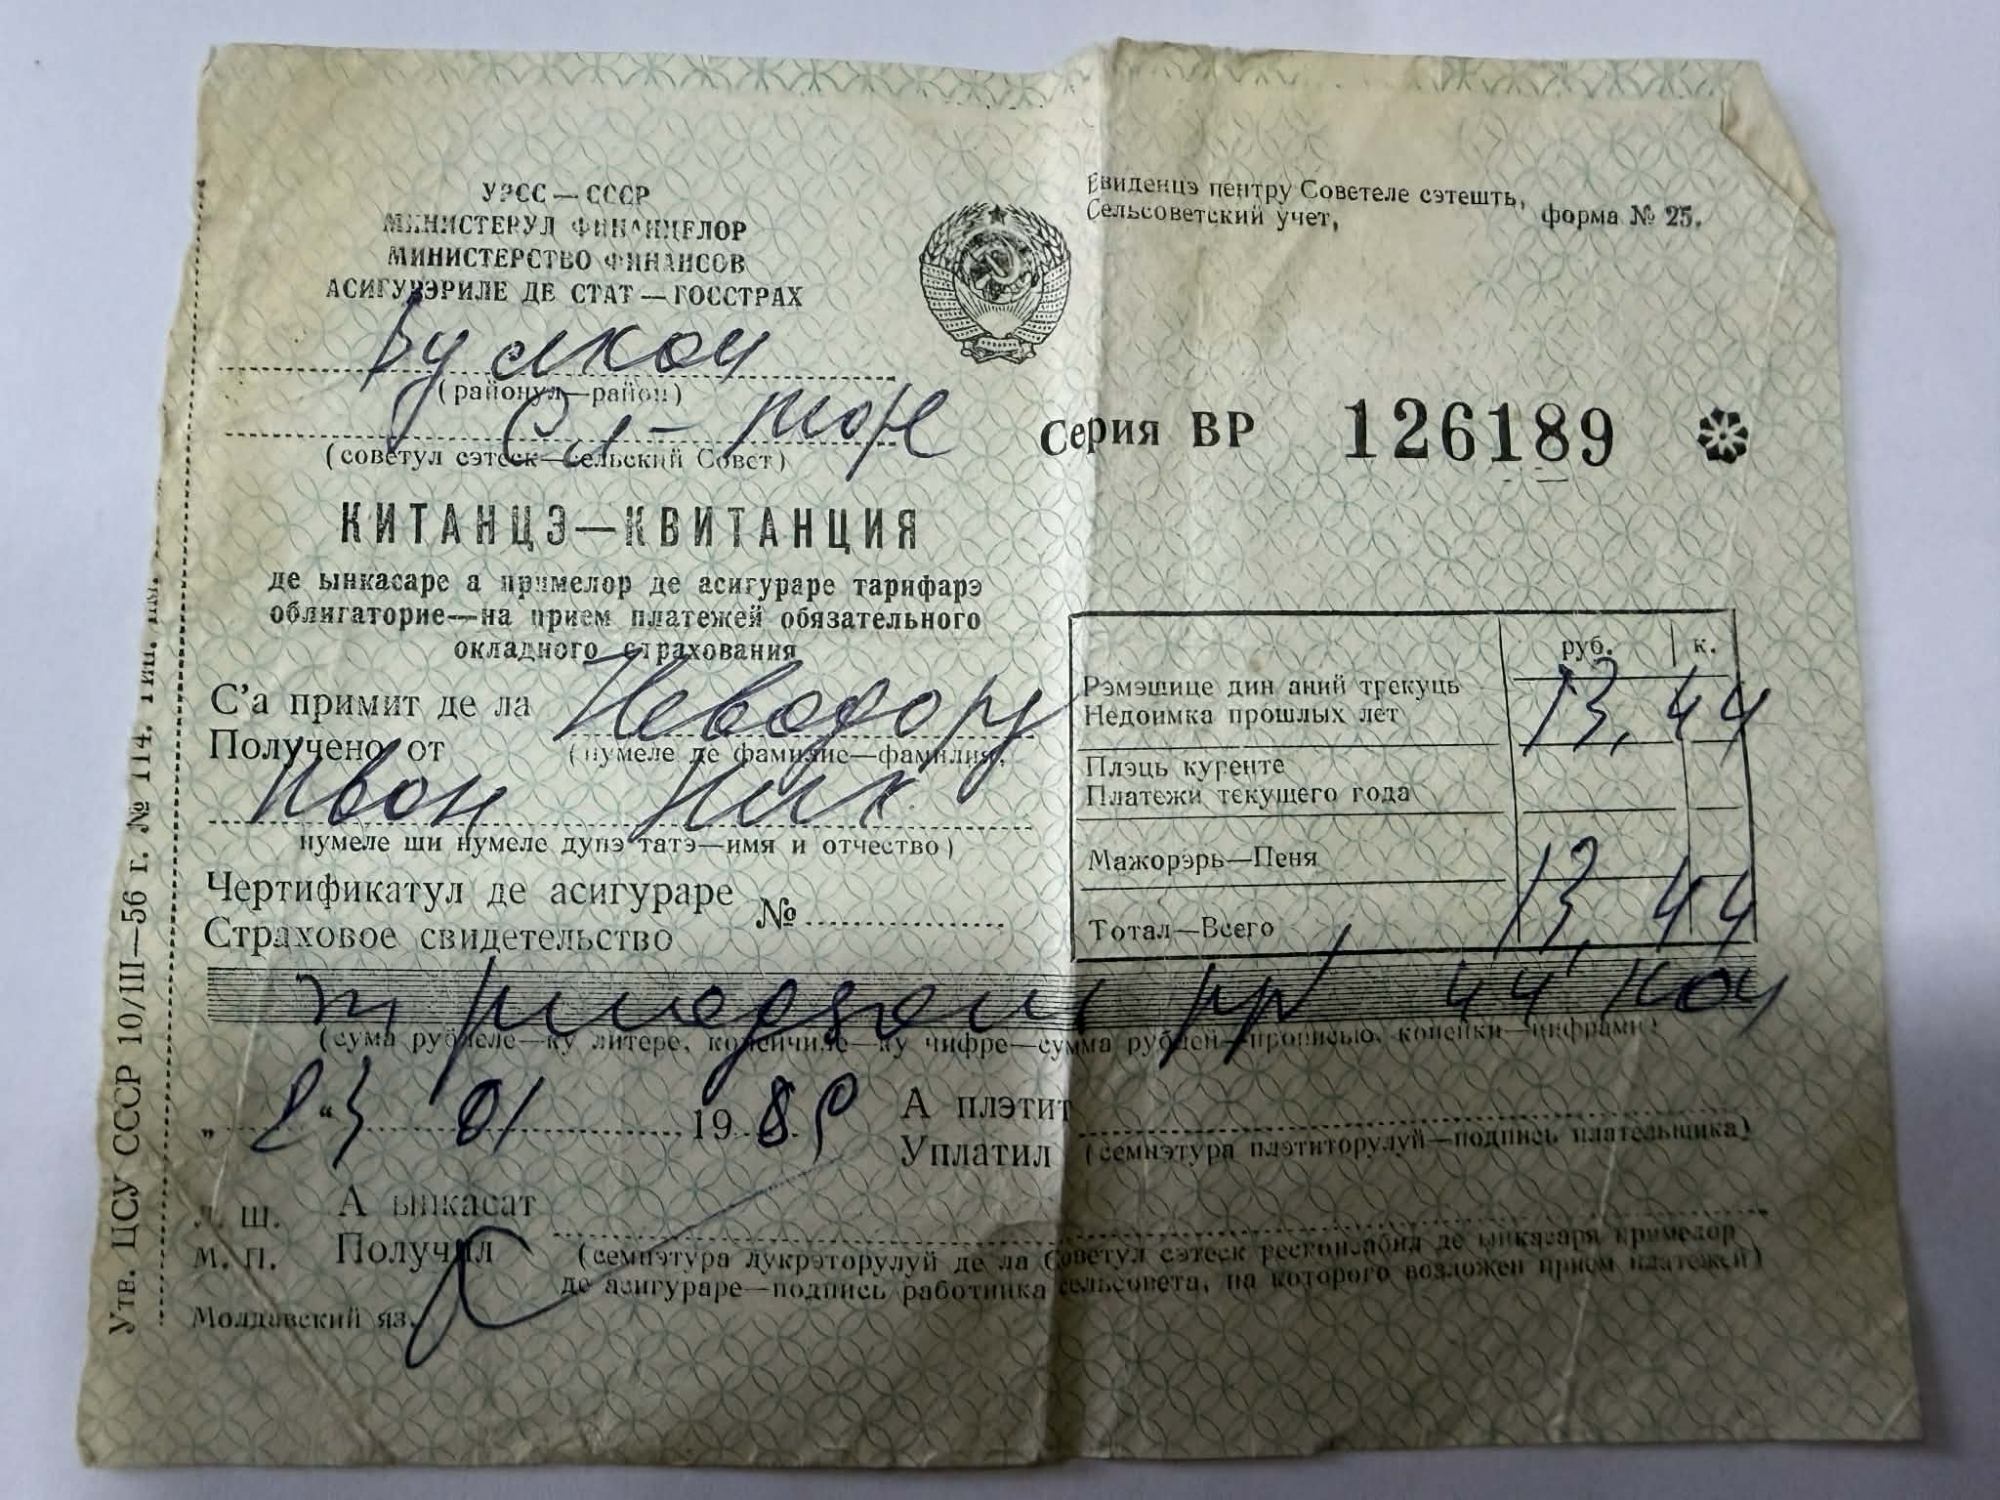 УРСС — СССР
МИНИСТЕРУЛ ФИНАНЦЕЛОР
МИНИСТЕРСТВО ФИНАНСОВ
АСИГУРЭРИЛЕ ДЕ СТАТ — ГОССТРАХ
(районул—район)
(советул сэтеск—сельский Совет)
Евиденцэ пентру Советеле сэтешть,
Сельсоветский учет, форма № 25.
Серия ВР 126189
КИТАНЦЭ—КВИТАНЦИЯ
де ынкасаре а примелор де асигураре тарифарэ
облигаторие—на прием платежей обязательного
окладного страхования
С'а примит де ла
Получено от
(нумеле де фамилие—фамилия,
Ивон Ник
нумеле ши нумеле дупэ татэ—имя и отчество)
Чертификатул де асигураре
Страховое свидетельство №
руб. к.
Рэмэшице дин аний трекуць
Недоимка прошлых лет 13, 44
Плэць куренте
Платежи текущего года
Мажорэрь—Пеня
Тотал—Всего 13, 44
44 коп
(сума рубLеле—ку литере, копейчиле—ку чифре—сумма рублей—прописью, копейки—цифрами)
„ 23 “ 01 19 89
А плэтит
Уплатил (семнэтура плэтиторулуй—подпись плательщика)
Л. Ш. А ынкасат
М. П. Получил
(семнэтура лукрэторулуй де ла Советул сэтеск респонсабил де ынкасаря примелор
де асигураре—подпись работника сельсовета, на которого возложен прием платежей)
Молдавский яз.
Утв. ЦСУ СССР 10/III—56 г. № 114.